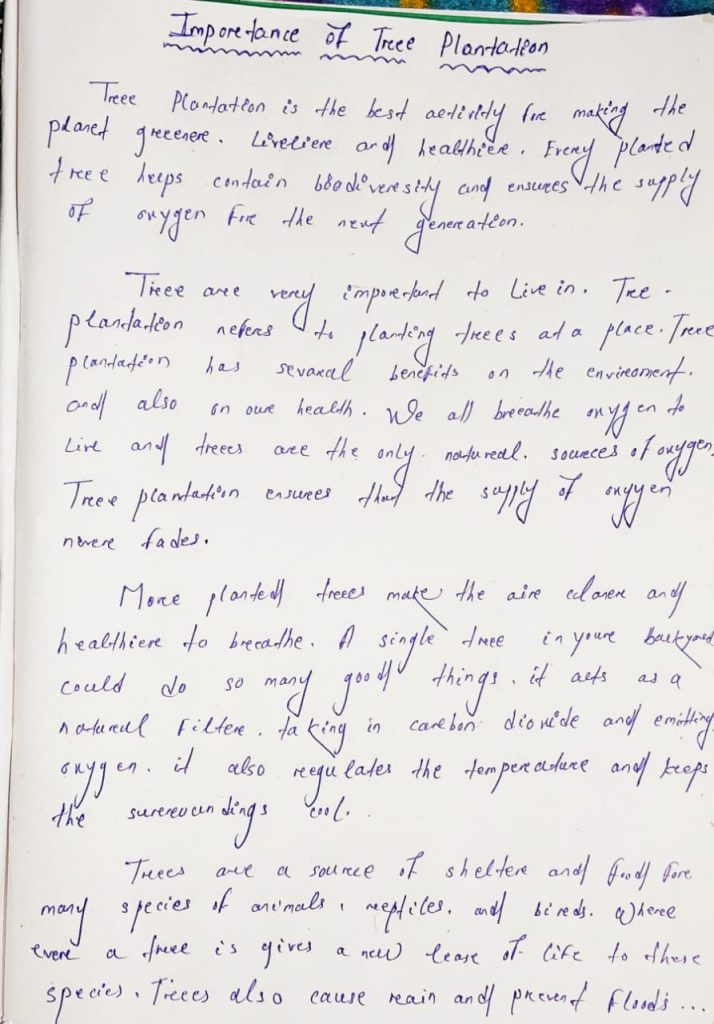 Importance of Tree Plantation
Tree Plantation is the best activity for making the
planet greener. Livelier and healthier. Every planted
tree heeps contain biodiversity and ensures the supply
of oxygen for the next generation.
Tree are very important to Live in. Tree -
plantation refers to planting trees at a place. Tree
plantation has sevaral benefits on the enviroment.
and also on our health. We all breathe oxygen to
Live and trees are the only. natural. sources of oxygen,
Tree plantation ensures that the supply of oxyyen
never fades.
More planted trees make the air claner and
healthier to breathe. A single tree in your backyard
could do so many good things. it acts as a
natural Filter. taking in carbon dioxide and emitting
oxygen. it also regulates the temperature and keeps
the surroundings cool.
Trees are a source of shelter and food for
many species of animals, reptiles. and birds. Where
ever a tree is gives a new lease of life to these
species. Trees also cause rain and prevent Floods...